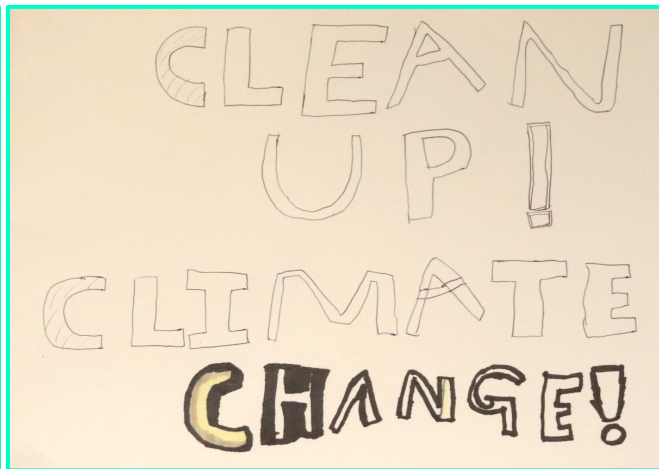 CLEAN
UP!
CLIMATE
CHANGE!